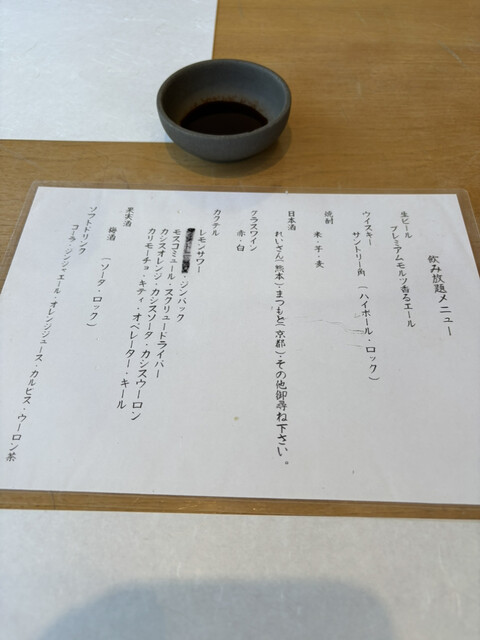 飲み放題メニュー
生ビール
プレミアムモルツ香るエール
ウィスキー
サントリー角 (ハイボール・ロック)
焼酎
米・芋・麦
日本酒
れいざん(熊本)・まつもと(京都)・その他御尋ね下さい。
グラスワイン
赤・白
カクテル
レモンサワー
・ジンバック
モスコミュール・スクリュードライバー
カシスオレンジ・カシスソーダ・カシスウーロン
カリモーチョ・キティ・オペレーター・キール
果実酒
梅酒 (ソーダ・ロック)
ソフトドリンク
コーラ・ジンジャエール・オレンジジュース・カルピス・ウーロン茶